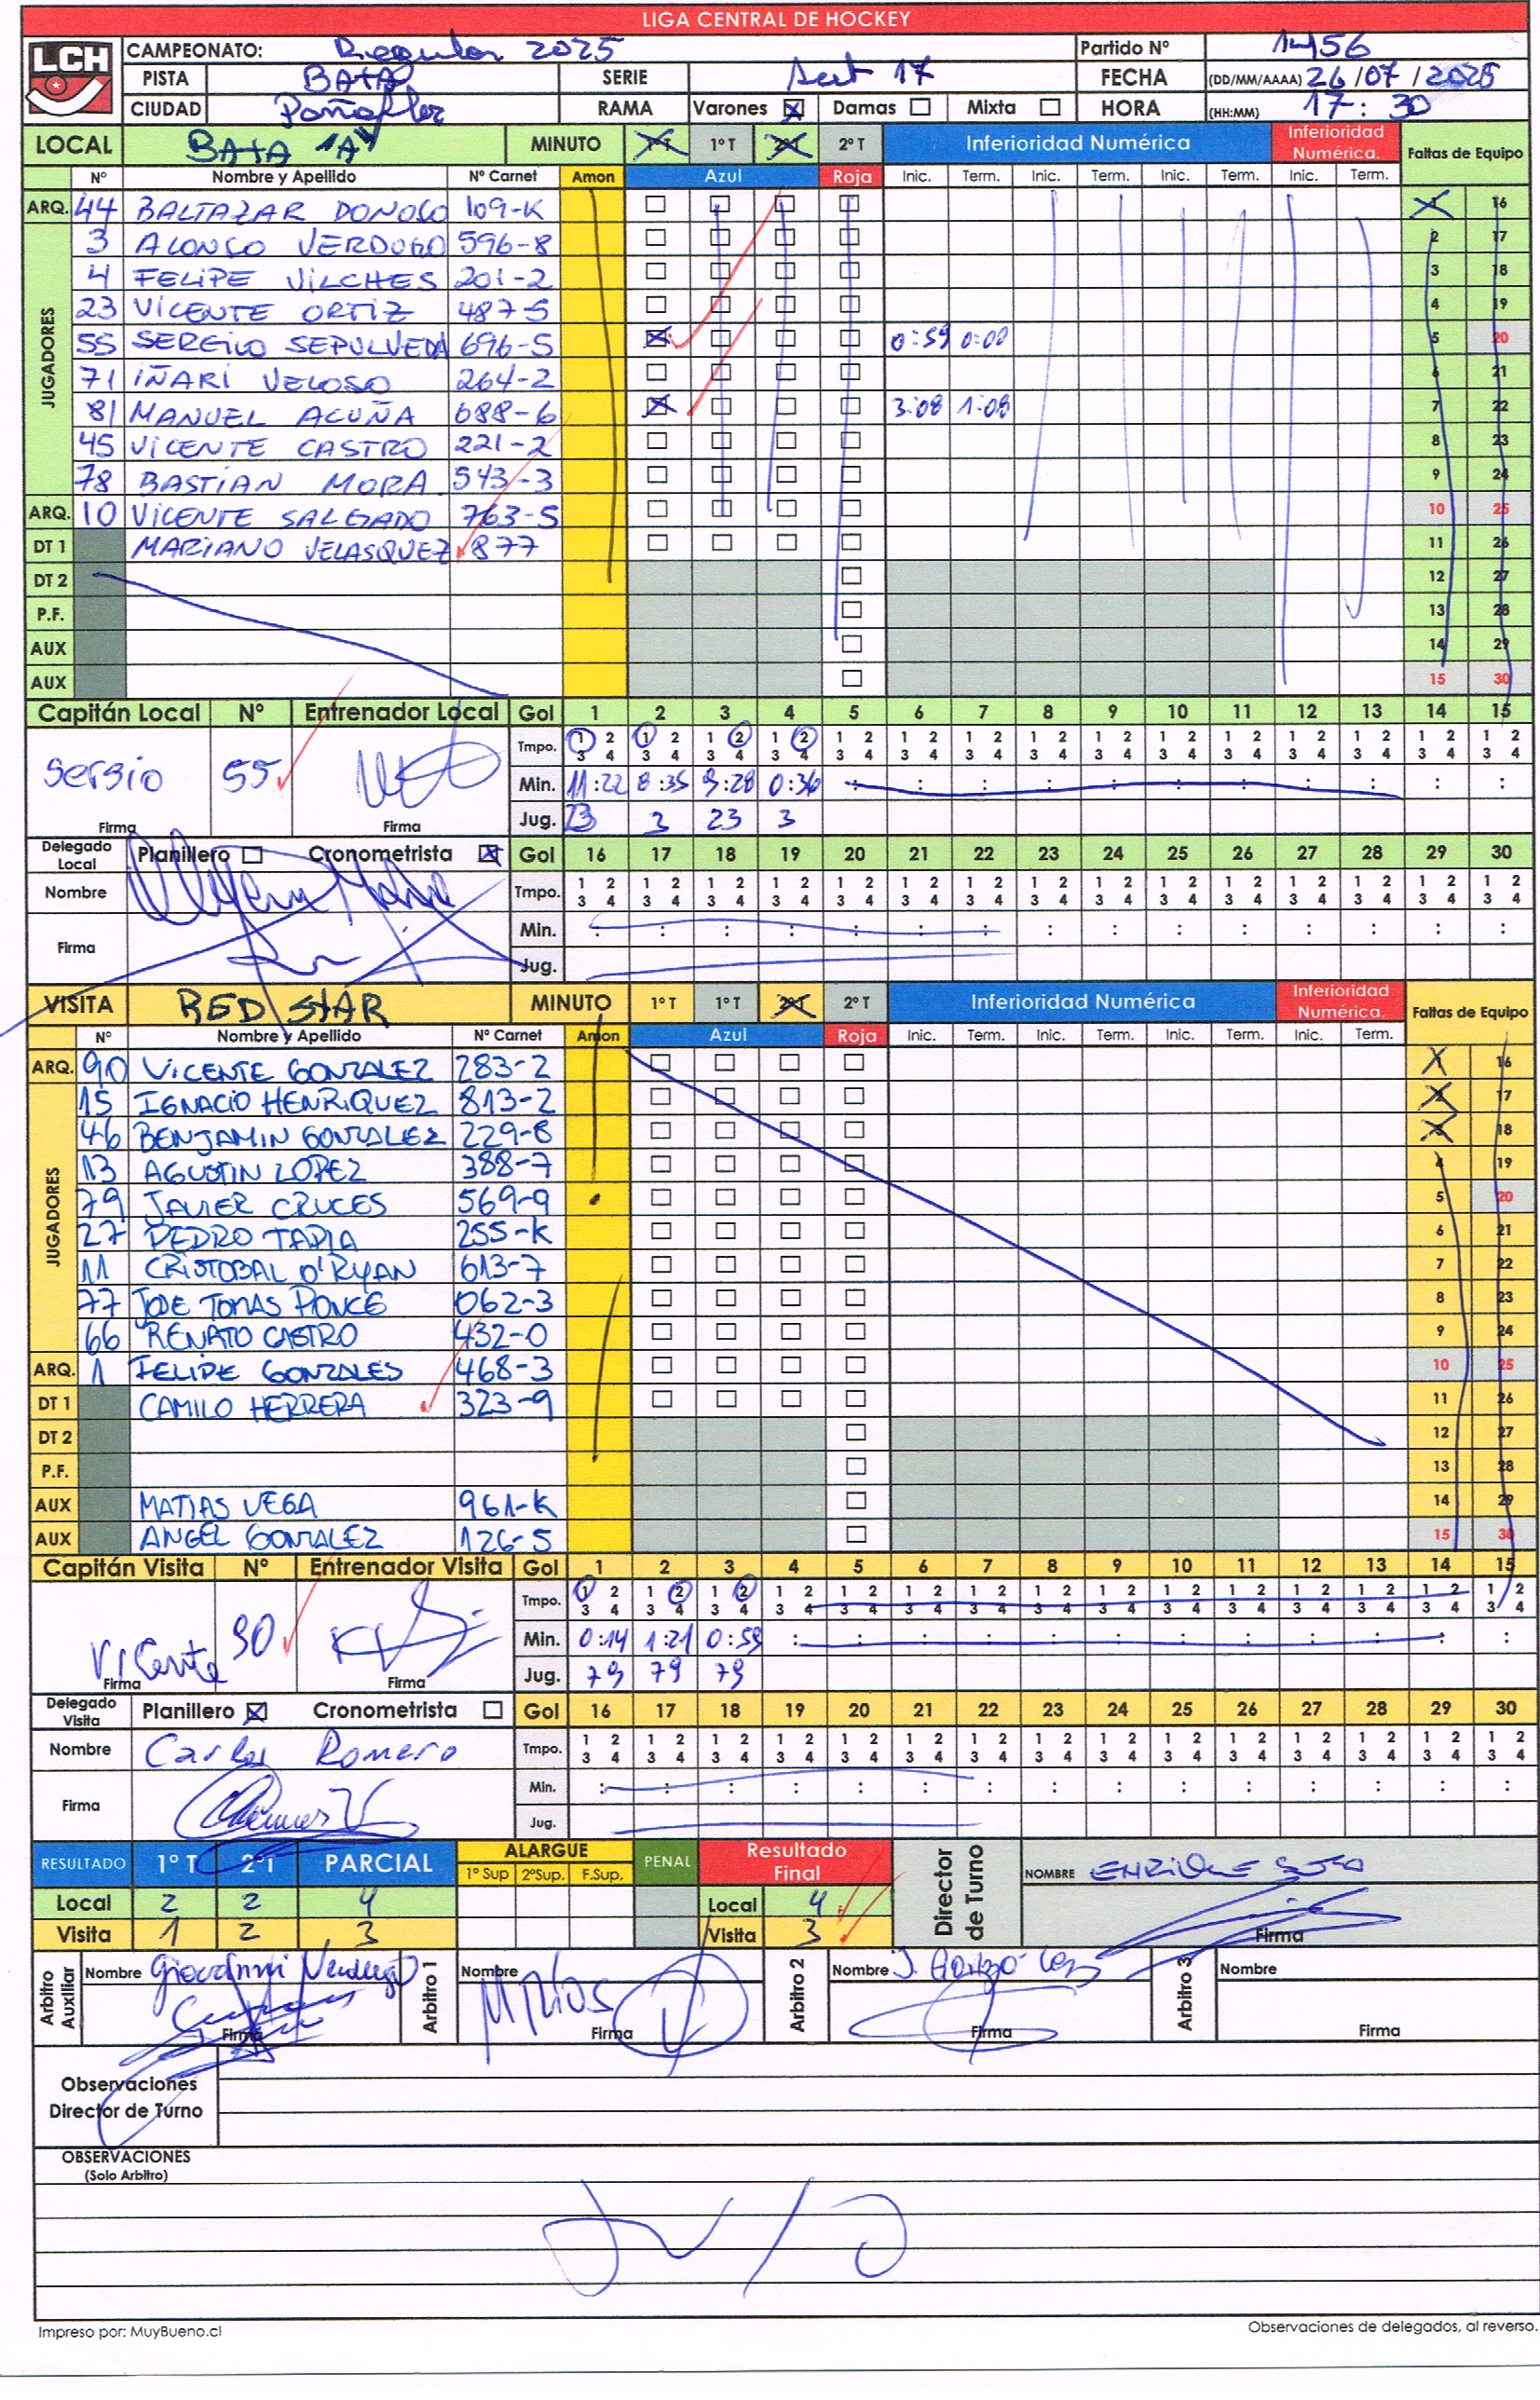 LIGA CENTRAL DE HOCKEY
LCH
CAMPEONATO: Regular 2025 Partido Nº 14156
PISTA BATA SERIE Sub 17 FECHA (DD/MM/AAAA) 26/07/2025
CIUDAD Peñaflor RAMA Varones Damas Mixta HORA (HH:MM) 17:30
LOCAL BATA "A" MINUTO 1º T 1º T 2º T 2º T Inferioridad Numérica Inferioridad Numérica. Faltas de Equipo
Nº Nombre y Apellido Nº Carnet Amon Azul Roja Inic. Term. Inic. Term. Inic. Term. Inic. Term.
JUGADORES
ARQ. 44 BALTAZAR DONOSO 109-K 1 16
3 ALONSO VERDUGO 596-8 2 17
4 FELIPE VILCHES 201-2 3 18
23 VICENTE ORTIZ 487-5 4 19
55 SERGIO SEPULVEDA 696-5 0:59 0:00 5 20
71 IÑAKI VELOSO 264-2 6 21
81 MANUEL ACUÑA 688-6 3:08 1:08 7 22
45 VICENTE CASTRO 221-2 8 23
78 BASTIAN MORA 543-3 9 24
ARQ. 10 VICENTE SALGADO 763-5 10 25
DT 1 MARIANO VELASQUEZ 877 11 26
DT 2 12 27
P.F. 13 28
AUX 14 29
AUX 15 30
Capitán Local Nº Entrenador Local Gol 1 2 3 4 5 6 7 8 9 10 11 12 13 14 15
Tmpo. 1 2 1 2 1 2 1 2 1 2 1 2 1 2 1 2 1 2 1 2 1 2 1 2 1 2 1 2 1 2
3 4 3 4 3 4 3 4 3 4 3 4 3 4 3 4 3 4 3 4 3 4 3 4 3 4 3 4 3 4
Sergio 55 Min. 11:22 8:35 9:28 0:36 : : : : : : : : : : :
Firma Firma Jug. 23 3 23 3
Delegado Local Planillero Cronometrista Gol 16 17 18 19 20 21 22 23 24 25 26 27 28 29 30
Nombre Tmpo. 1 2 1 2 1 2 1 2 1 2 1 2 1 2 1 2 1 2 1 2 1 2 1 2 1 2 1 2 1 2
3 4 3 4 3 4 3 4 3 4 3 4 3 4 3 4 3 4 3 4 3 4 3 4 3 4 3 4 3 4
Firma Min. : : : : : : : : : : : : : : :
Jug.
VISITA RED STAR MINUTO 1º T 1º T 2º T 2º T Inferioridad Numérica Inferioridad Numérica. Faltas de Equipo
Nº Nombre y Apellido Nº Carnet Amon Azul Roja Inic. Term. Inic. Term. Inic. Term. Inic. Term.
JUGADORES
ARQ. 90 VICENTE GONZALEZ 283-2 1 16
15 IGNACIO HENRIQUEZ 813-2 2 17
46 BENJAMIN GONZALEZ 229-8 3 18
13 AGUSTIN LOPEZ 388-7 4 19
79 JAVIER CRUCES 569-9 5 20
27 PEDRO TAPIA 255-K 6 21
11 CRISTOBAL O'RYAN 613-7 7 22
77 JOSE TOMAS PONCE 062-3 8 23
66 RENATO CASTRO 432-0 9 24
ARQ. 1 FELIPE GONZALES 468-3 10 25
DT 1 CAMILO HERRERA 323-9 11 26
DT 2 12 27
P.F. 13 28
AUX MATIAS VEGA 961-K 14 29
AUX ANGEL GONZALEZ 126-5 15 30
Capitán Visita Nº Entrenador Visita Gol 1 2 3 4 5 6 7 8 9 10 11 12 13 14 15
Tmpo. 1 2 1 2 1 2 1 2 1 2 1 2 1 2 1 2 1 2 1 2 1 2 1 2 1 2 1 2 1 2
3 4 3 4 3 4 3 4 3 4 3 4 3 4 3 4 3 4 3 4 3 4 3 4 3 4 3 4 3 4
Vicente 90 Min. 0:14 1:21 0:59 : : : : : : : : : : : :
Firma Firma Jug. 79 79 79
Delegado Visita Planillero Cronometrista Gol 16 17 18 19 20 21 22 23 24 25 26 27 28 29 30
Nombre Carlos Romero Tmpo. 1 2 1 2 1 2 1 2 1 2 1 2 1 2 1 2 1 2 1 2 1 2 1 2 1 2 1 2 1 2
3 4 3 4 3 4 3 4 3 4 3 4 3 4 3 4 3 4 3 4 3 4 3 4 3 4 3 4 3 4
Firma Min. : : : : : : : : : : : : : : :
Jug.
RESULTADO 1º T 2º T PARCIAL ALARGUE 1º Sup 2ºSup. F.Sup. PENAL Resultado Final Director de Turno NOMBRE ENRIQUE SOTO
Local 2 2 4 Local 4
Visita 1 2 3 Visita 3 Firma
Arbitro Auxiliar Nombre Giovanni Arbitro 1 Nombre M Rios Arbitro 2 Nombre J. Arbitro 3 Nombre
Firma Firma Firma Firma
Observaciones
Director de Turno
OBSERVACIONES
(Solo Arbitro)
Impreso por: MuyBueno.cl Observaciones de delegados, al reverso.